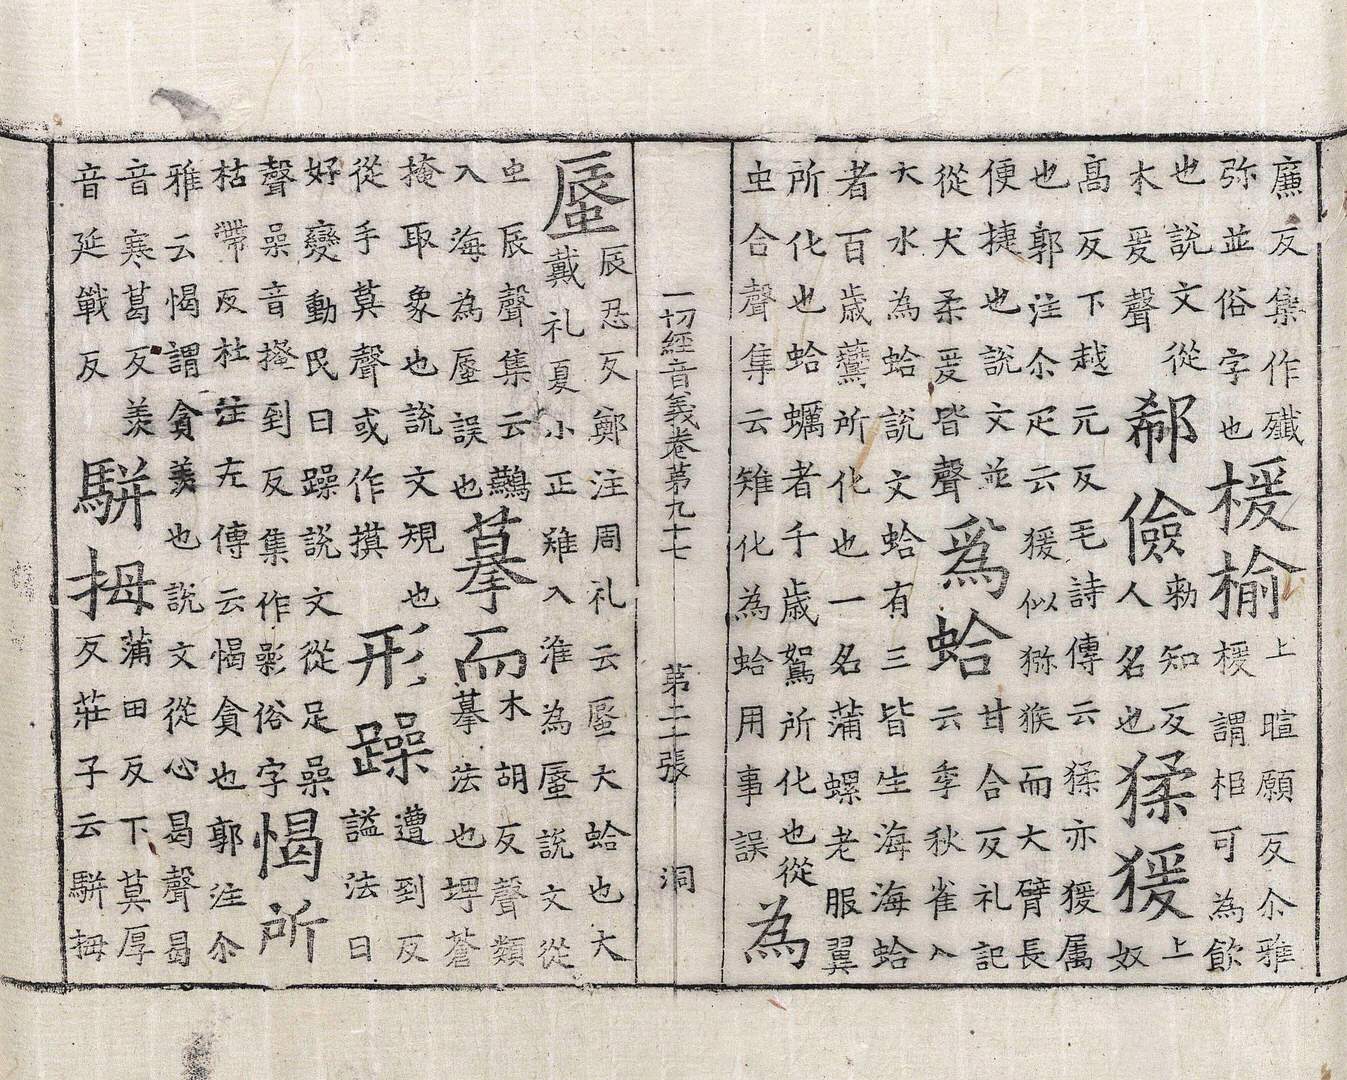 廉反集作殲
弥並俗字也
楥榆
上暄願反尒雅
楥謂柜可為飲
也說文從
木爰聲
郗儉
勑知反
人名也
猱猨
上
奴
高反下越元反毛詩傳云猱亦猨属
也郭注尒疋云猨似猕猴而大臂長
便捷也說文並
從犬柔爰皆聲
爲蛤
甘合反礼記
云季秋雀入
大水為蛤說文蛤有三皆生海海蛤
者百歲鷰所化也一名蒲螺老服翼
所化也蛤蠣者千歲鴽所化也從
虫合聲集云雉化為蛤用事誤
為
一切經音義卷第九十七 第二十張 洞
蜃
辰忍反鄭注周礼云蜃大蛤也大
戴礼夏小正雉入淮為蜃說文從
虫辰聲集云鷂
入海為蜃誤也
摹而
木胡反聲類
摹法也埤蒼
掩取象也說文規也
從手莫聲或作摸
形躁
遭到反
謚法曰
好變動民曰躁說文從足喿
聲喿音掻到反集作俗字
愒所
枯帶反杜注左傳云愒貪也郭注尒
雅云愒謂貪羨也說文從心曷聲曷
音寒葛反羨
音延戰反
駢拇
蒲田反下莫厚
反莊子云駢拇